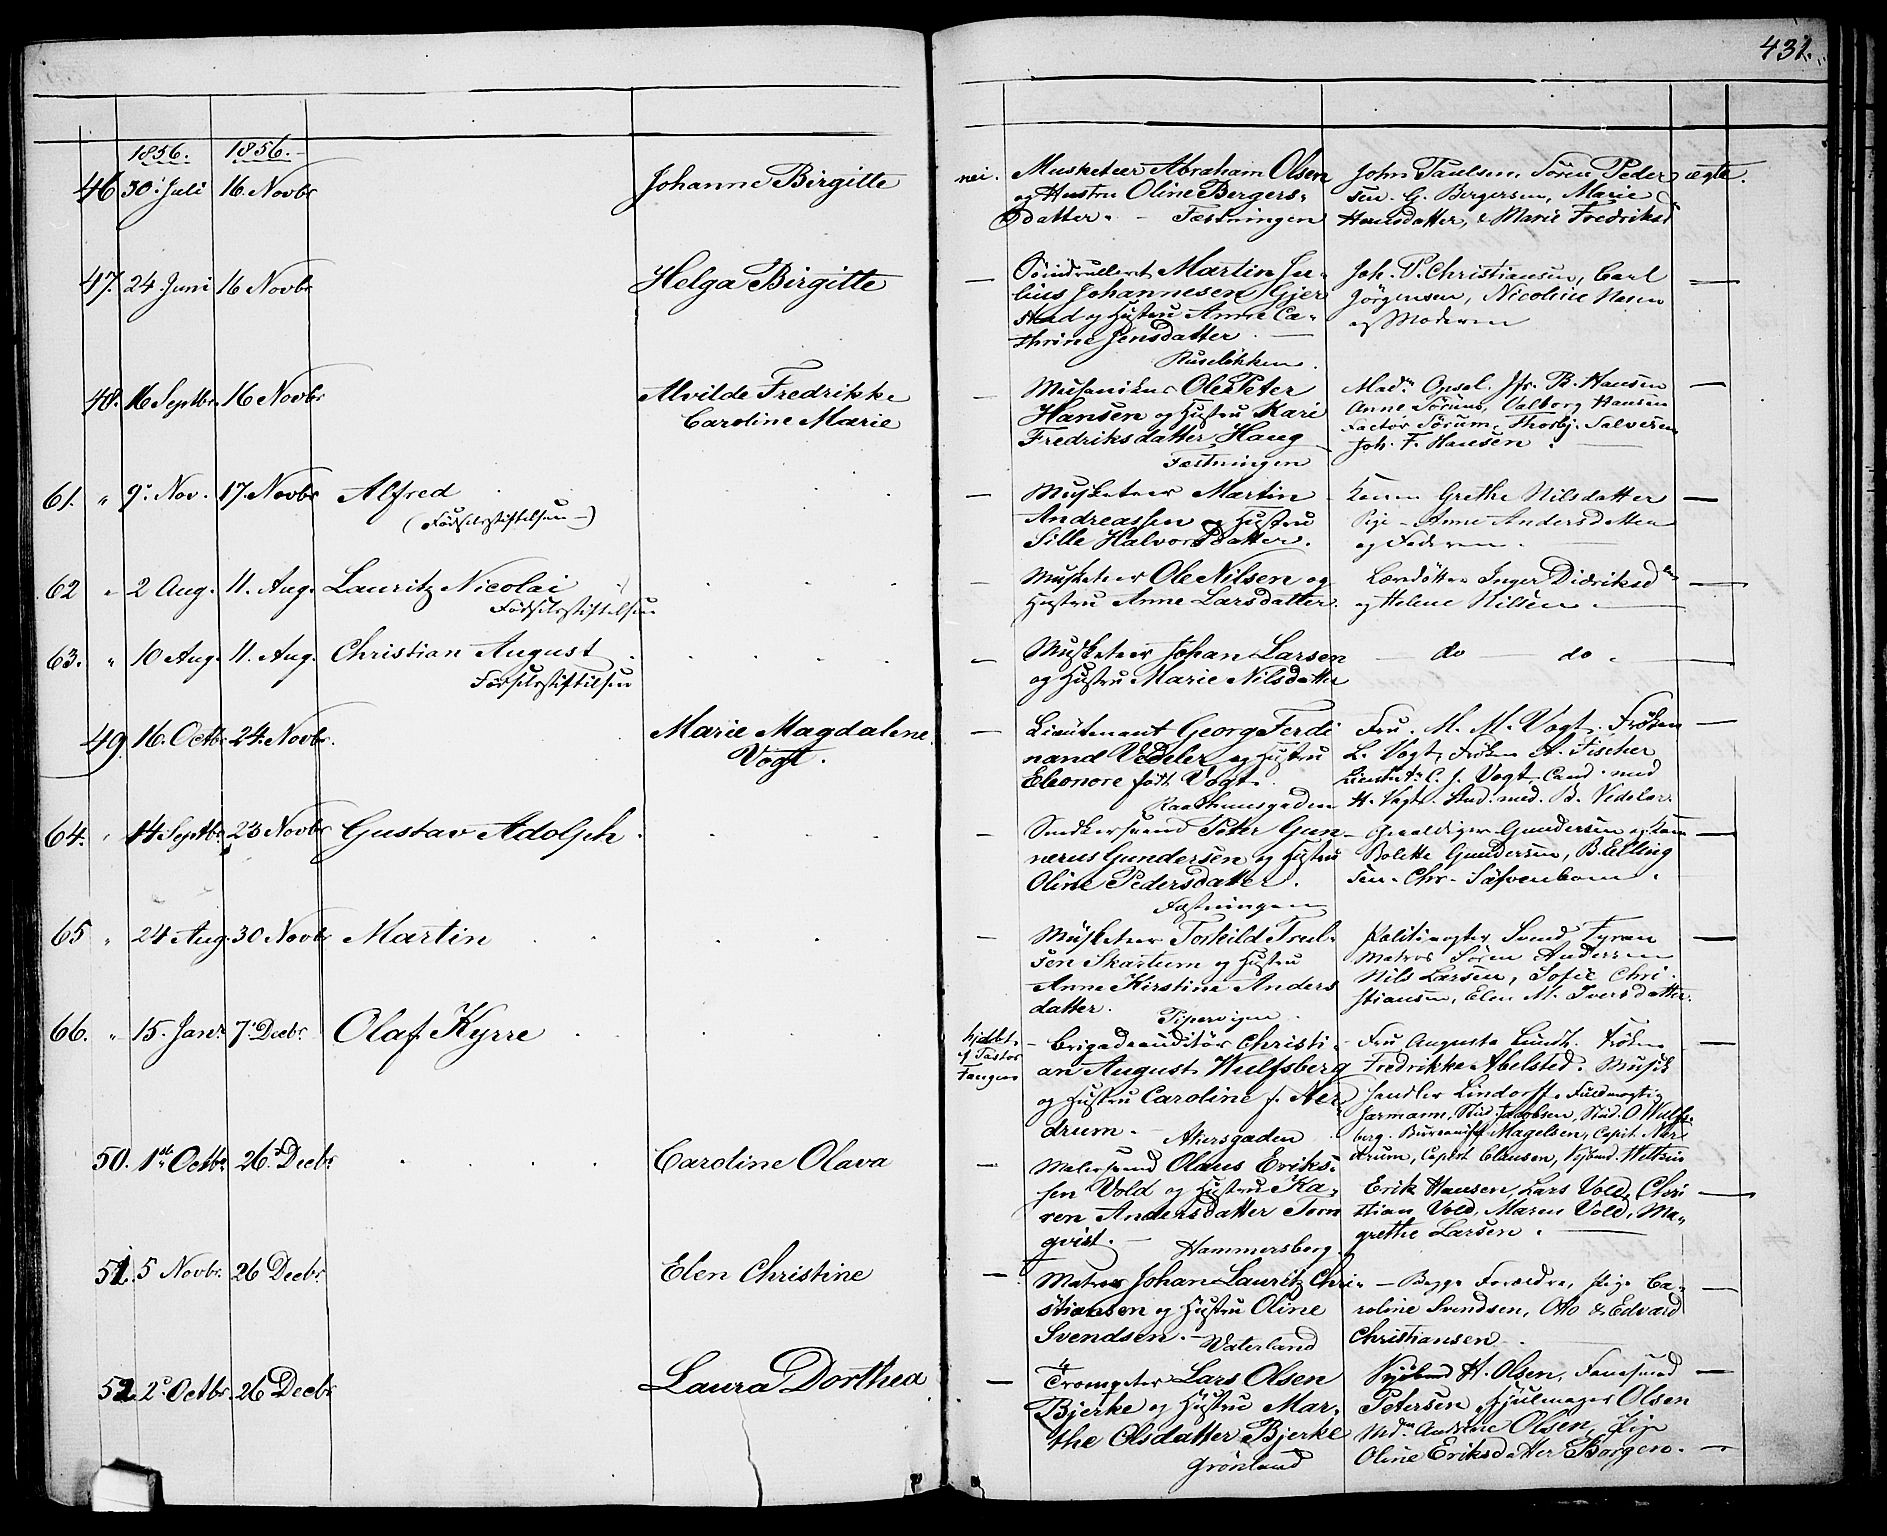 431.
1856. 1856.
46 30 Juli 16 Novbr Johanne Birgitte
nei. Musketeer Abraham Olsen
og Hustru Oline Bergers-
datter. - Fæstningen
John Paulsen, Sören Peder
sen. G. Bergersen, Marie
Hansdatter, & Marie Fredriksd
ægte.
47. 24 Juni 16 Novbr Helga Birgitte
— Söindrulleret Martin Ju-
lius Johannesen Gjer
stad og Hustru Anne Ca-
thrine Jensdatter
Ruselökken.
Joh. P. Christiansen, Carl
Jörgensen, Nicoline
og Moderen
—
48. 16 Septbr. 16 Novbr Alvilde Fredrikke
Caroline Marie
— Ole Peter
Hansen og Hustru Kari
Fredriksdatter Haug
Fæstningen
Mad. Opsal. Jfr. B. Hansen
Anne Sörum, Valborg Hansen
Factor Sörum, Thorbj. Salvesen
Joh. F. Hansen
—
61. " 9 Nov. 17 Novbr Alfred
(Födselsstiftelsen -)
— Musketeer Martin
Andreassen og Hustru
Sille Halvorsdatter.
Grethe Nilsdatter
Pige - Anne Andersdatter
og Faderen.
—
62 " 2 Aug. 11. Aug. Lauritz Nicolai
Födselsstiftelsen
— Musketeer Ole Nilsen og
Hustru Anne Larsdatter.
Inger Didriksd
og Helene Nilsen
—
63. " 10 Aug. 11. Aug. Christian August
Födselsstiftelsen
— Musketeer Johan Larsen
og Hustru Marie Nilsdatter
— do — do.
—
49 16. Octbr 24. Novbr. Marie Magdalene
Vogt.
— Lieutenant Georg Ferdi
nand Vedeler og Hustru
Eleonore född Vogt.
Raadhuusgaden
Fru. M. M. Vogt, Fröken
L. Vogt, Fröken A. Fischer
Lieutnt. C. J. Vogt, Cand. med
H. Vogt. Stud. med. B. Vedeler.
—
64. " 14 Septbr. 23 Novbr Gustav Adolph
— Snedkersvend Peter Gun-
nerus Gundersen og Hustru
Oline Pedersdatter.
Fæstningen
Gevaldiger Gundersen og
Bolette Gundersen, B. Elling
sen - Chr.
—
65 " 24 Aug. 30 Novbr Martin
— Musketeer Torkild Trul-
sen Skartum og Hustru
Anne Kirstine Anders
datter. Pipervigen
Politivagter Svend Tyran
Matros Sören Andersen
Nils Larsen, Sofie Chri-
stiansen, Elen M. Iversdatter.
—
66. " 15. Janr. 7 Decbr. Olaf Kyrre
hjdöbt.
af Pastor
Fangen
- Brigadeauditör Christi-
an August Wulfsberg
og Hustru Caroline f. Ner-
drum. - Akersgaden
Fru Augusta Lundh. Fröken
Fredrikke Abelsted. Musik
handler Lindorff. Fuldmægtig
Jarmann, Stud. Jacobsen, Stud. O. Wulfs-
berg. Magelsen, Capit. Ner-
drum, Capit. Clausen,
50. 1st Octbr. 26. Decbr Caroline Olava
— Malersvend Olaus Erik-
sen Vold og Hustru Ka-
ren Andersdatter Torn
qvist. - Hammersberg.
Erik Hansen, Lars Vold, Chri
stian Vold, Maren Vold, Ma-
grethe Larsen.
—
51 5 Novbr. 26 Decbr. Elen Christine
— Matros Johan Lauritz Chri-
stiansen og Hustru Oline
Svendsen. - Vaterland
- Begge Forældre, Pige Ca-
roline Svendsen, Otto & Edvard
Christiansen
—
52 2 Octbr. 26 Decbr Laura Dorthea
— Trompeter Lars Olsen
Bjerke og Hustru Mar-
the Olsdatter Bjerke
Grönland
H. Olsen,
Petersen, Hjulmager Olsen
Md. Andrine Olsen, Pige
Oline Eriksdatter Borgen.
—